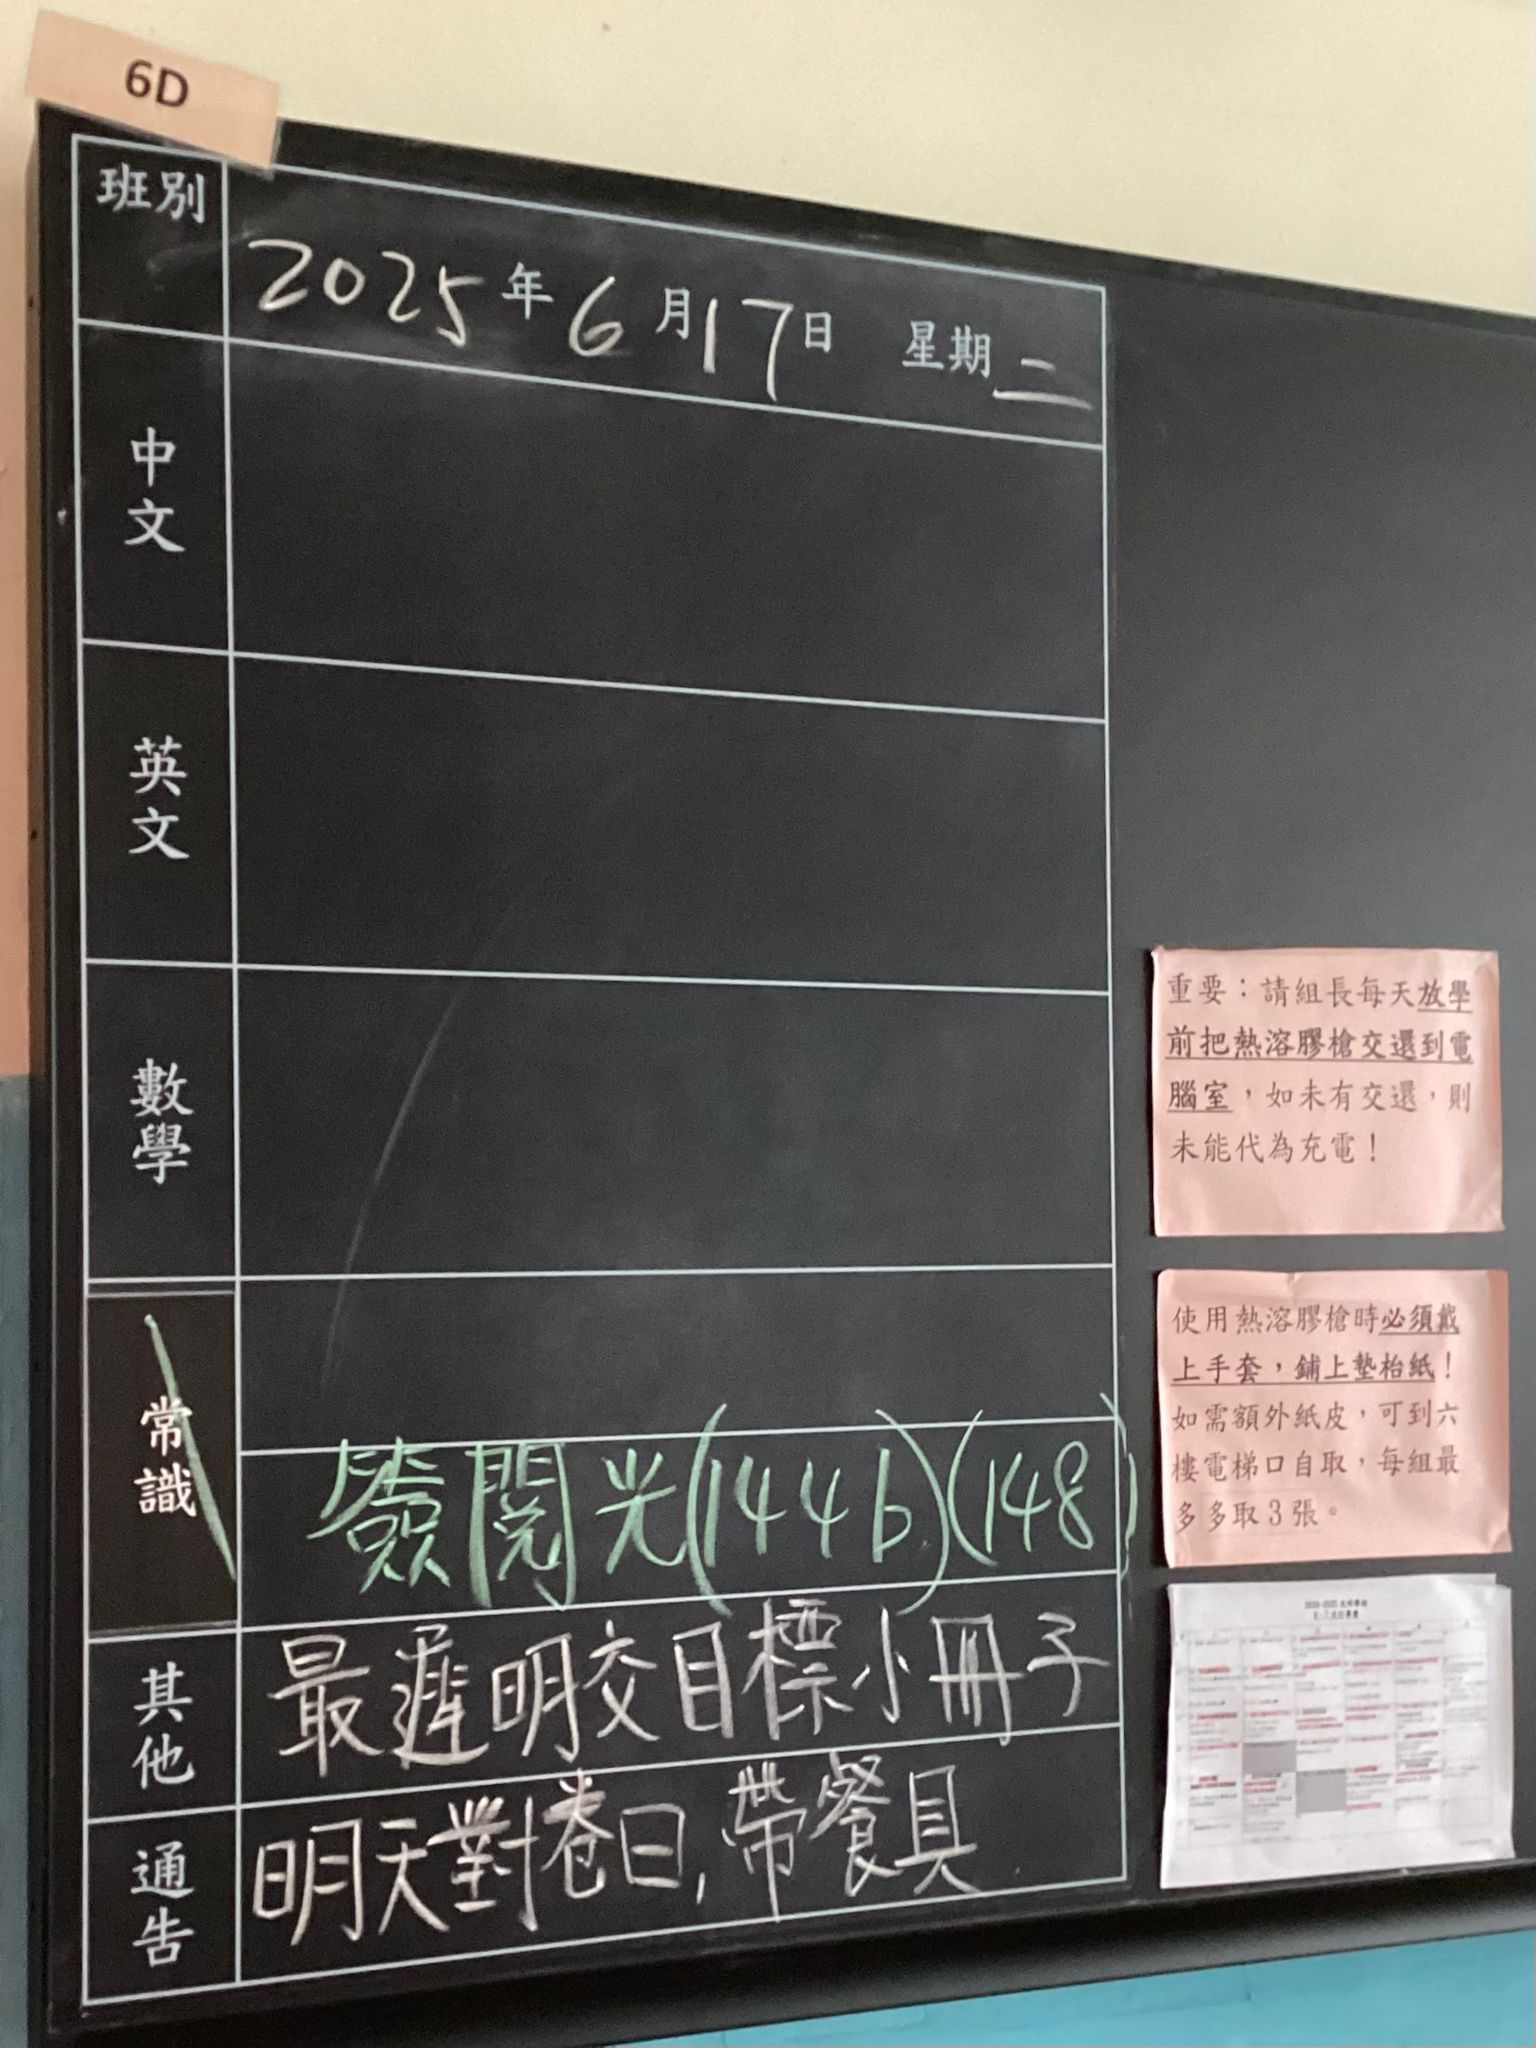 6D
班別
2025年6月17日 星期二
中文
英文
數學
常識
簽閱光(144b)(148)
其他
最遲明交目標小冊子
通告
明天對卷日,帶餐具
重要：請組長每天放學
前把熱溶膠槍交還到電
腦室，如未有交還，則
未能代為充電！
使用熱溶膠槍時必須戴
上手套，鋪上墊枱紙！
如需額外紙皮，可到六
樓電梯口自取，每組最
多多取3張。